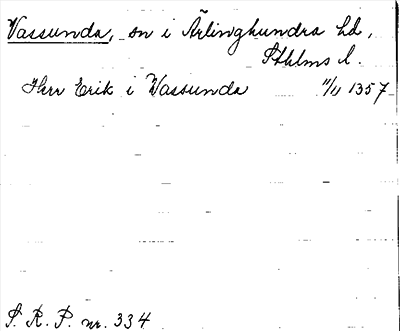 Vassunda, sn i Ärlinghundra hd,
Sthlms l.
Herr Erik i Wassunda 11/11 1357
S. R. P. nr. 334